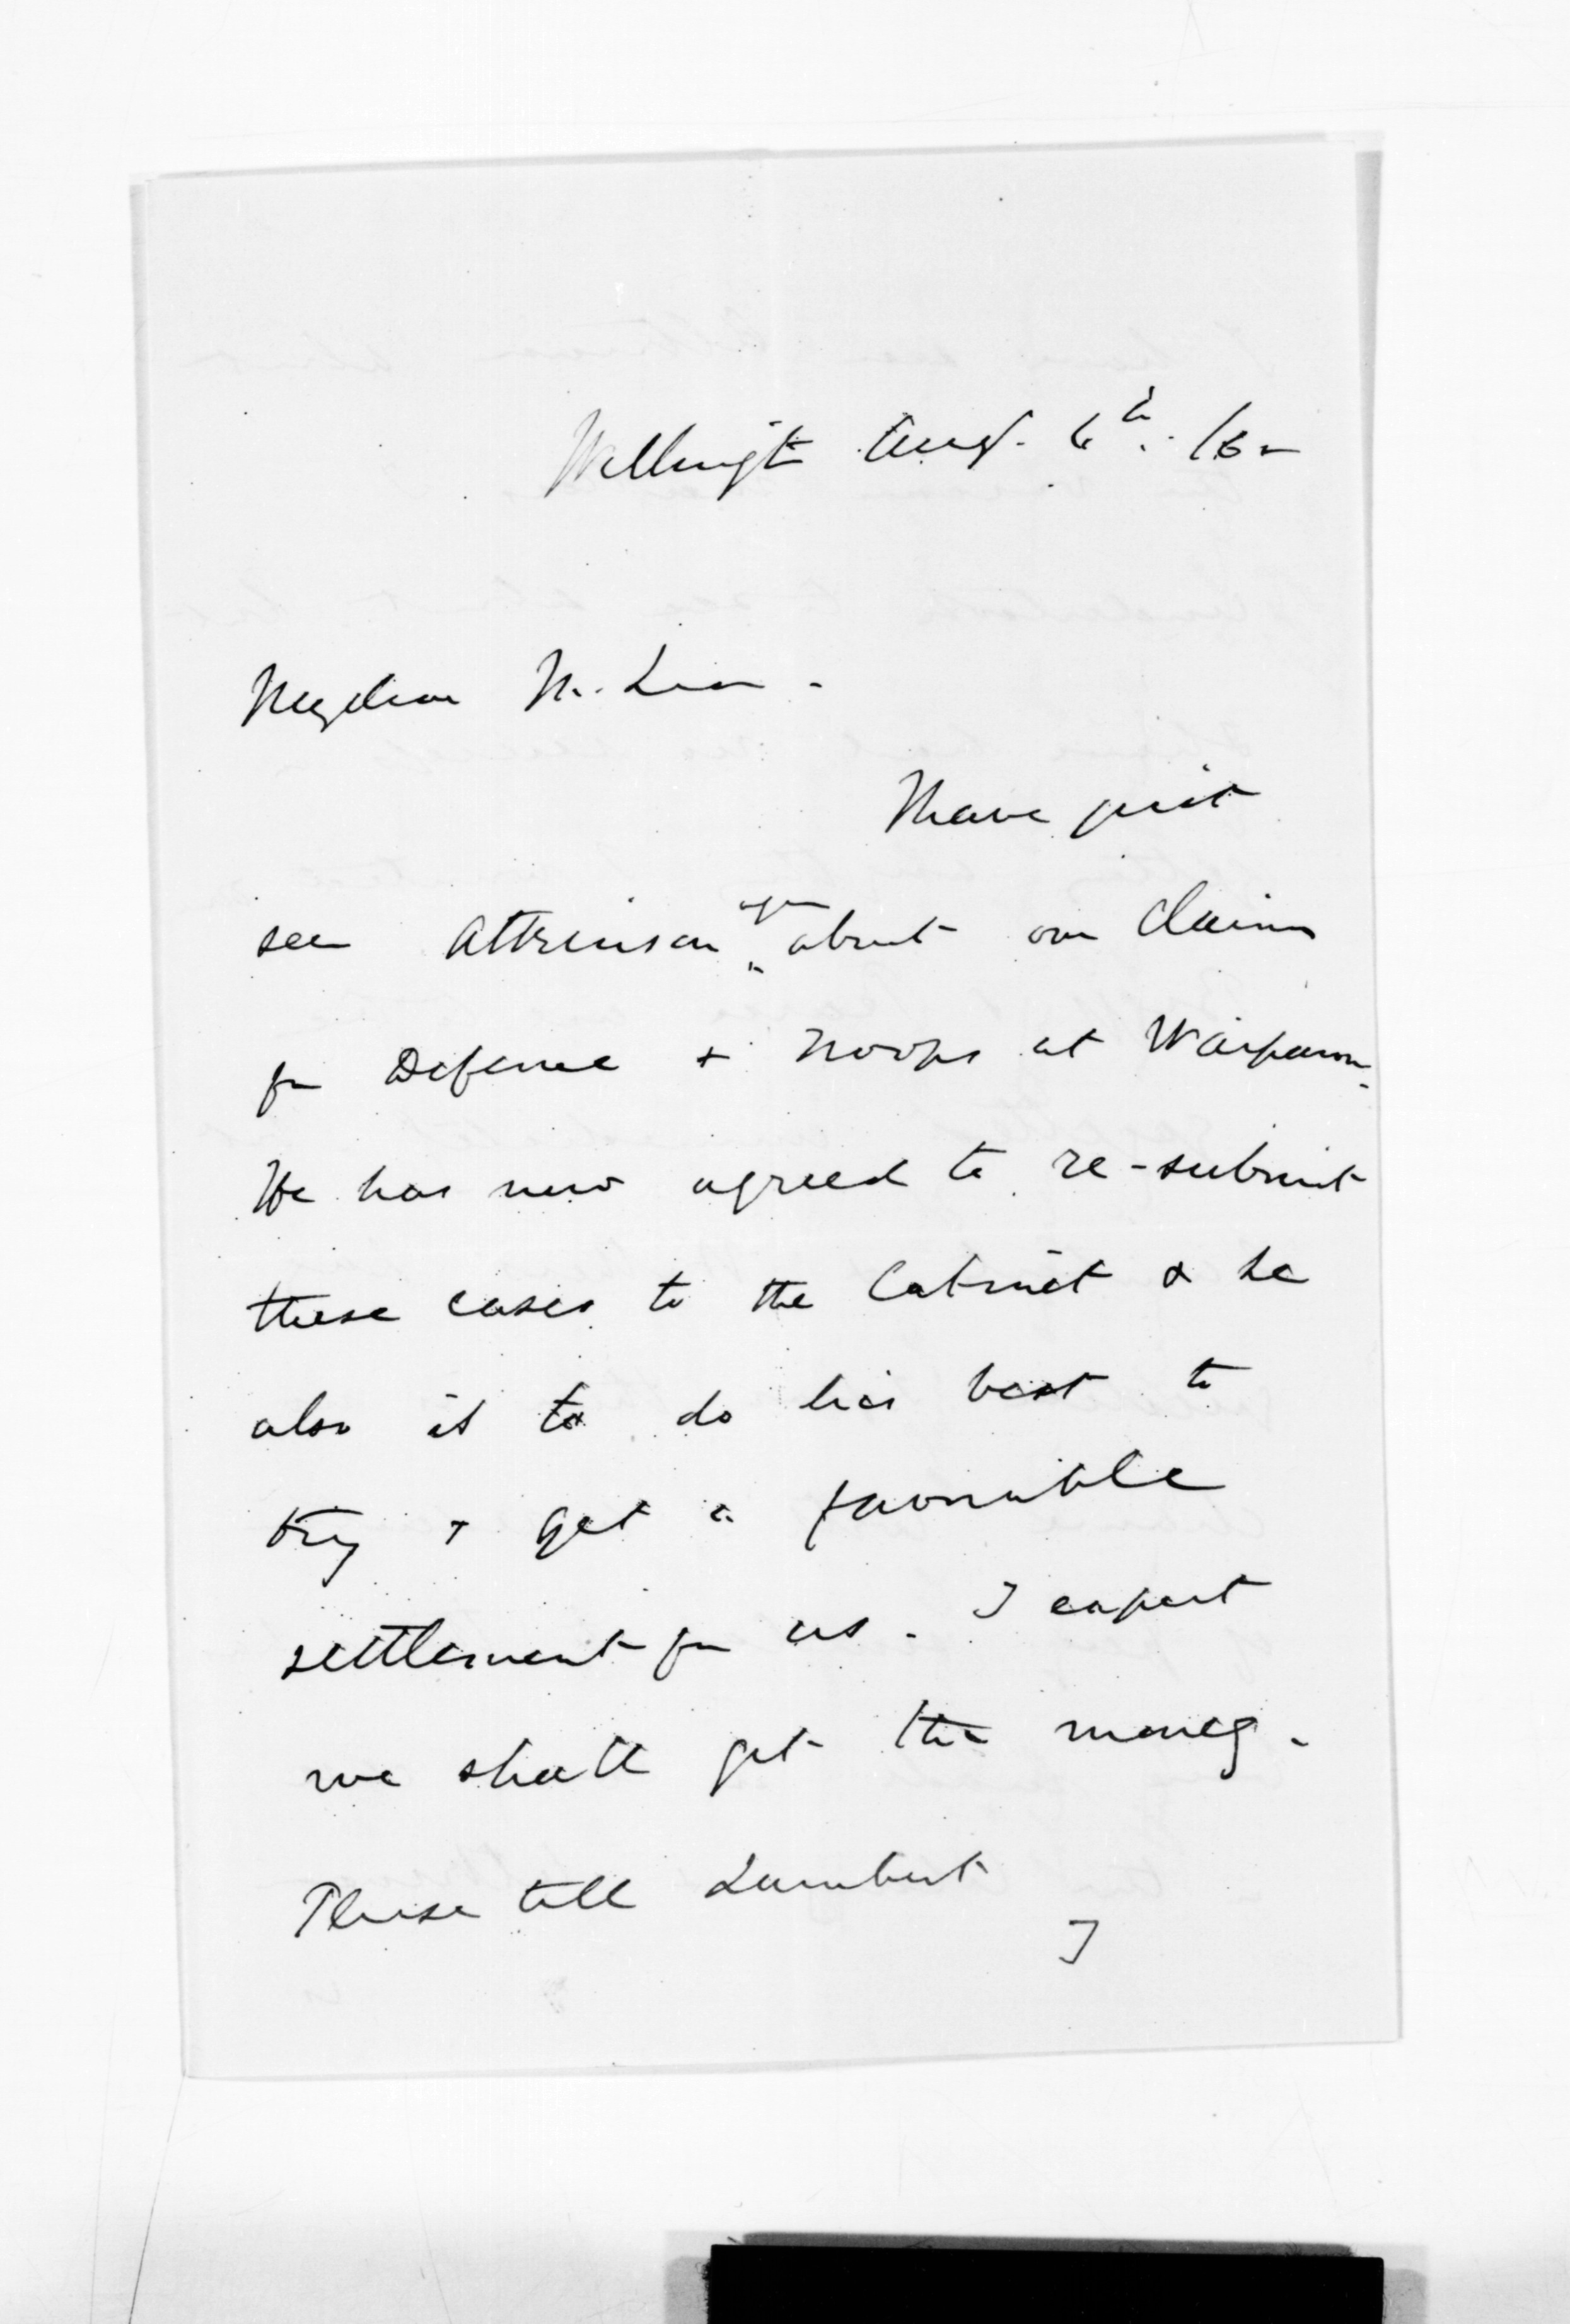 Wellingtn Augt. 6th. /6
My dear McLean -
I have just
seen Attkinson again about our claims
for Defence & Troops at Waipawa.
He has now agreed to re-submit
these cases to the Cabinet & he
also is to do his best to
try & get a favourable
settlement for us. I expect
we shall get the money.
Please tell Lambert
I